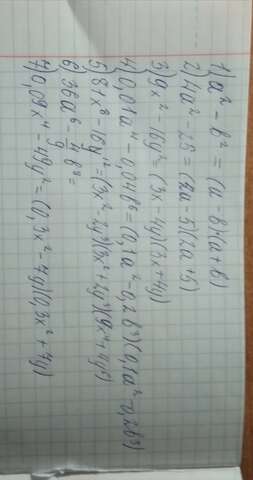 1) a² - b² = (a - b)(a + b)
2) 4a² - 25 = (2a - 5)(2a + 5)
3) 9x² - 16y² = (3x - 4y)(3x + 4y)
4) 0,01a⁴ - 0,04b⁶ = (0,1a² - 0,2b³)(0,1a² - 0,2b³)
5) 81x⁸ - 16y¹² = (3x² - 2y³)(3x² + 2y³)(9x⁴ + 4y⁶)
6) 36a⁶ - 9/4 b⁸ =
7) 0,09x⁴ - 49y² = (0,3x² - 7y)(0,3x² + 7y)